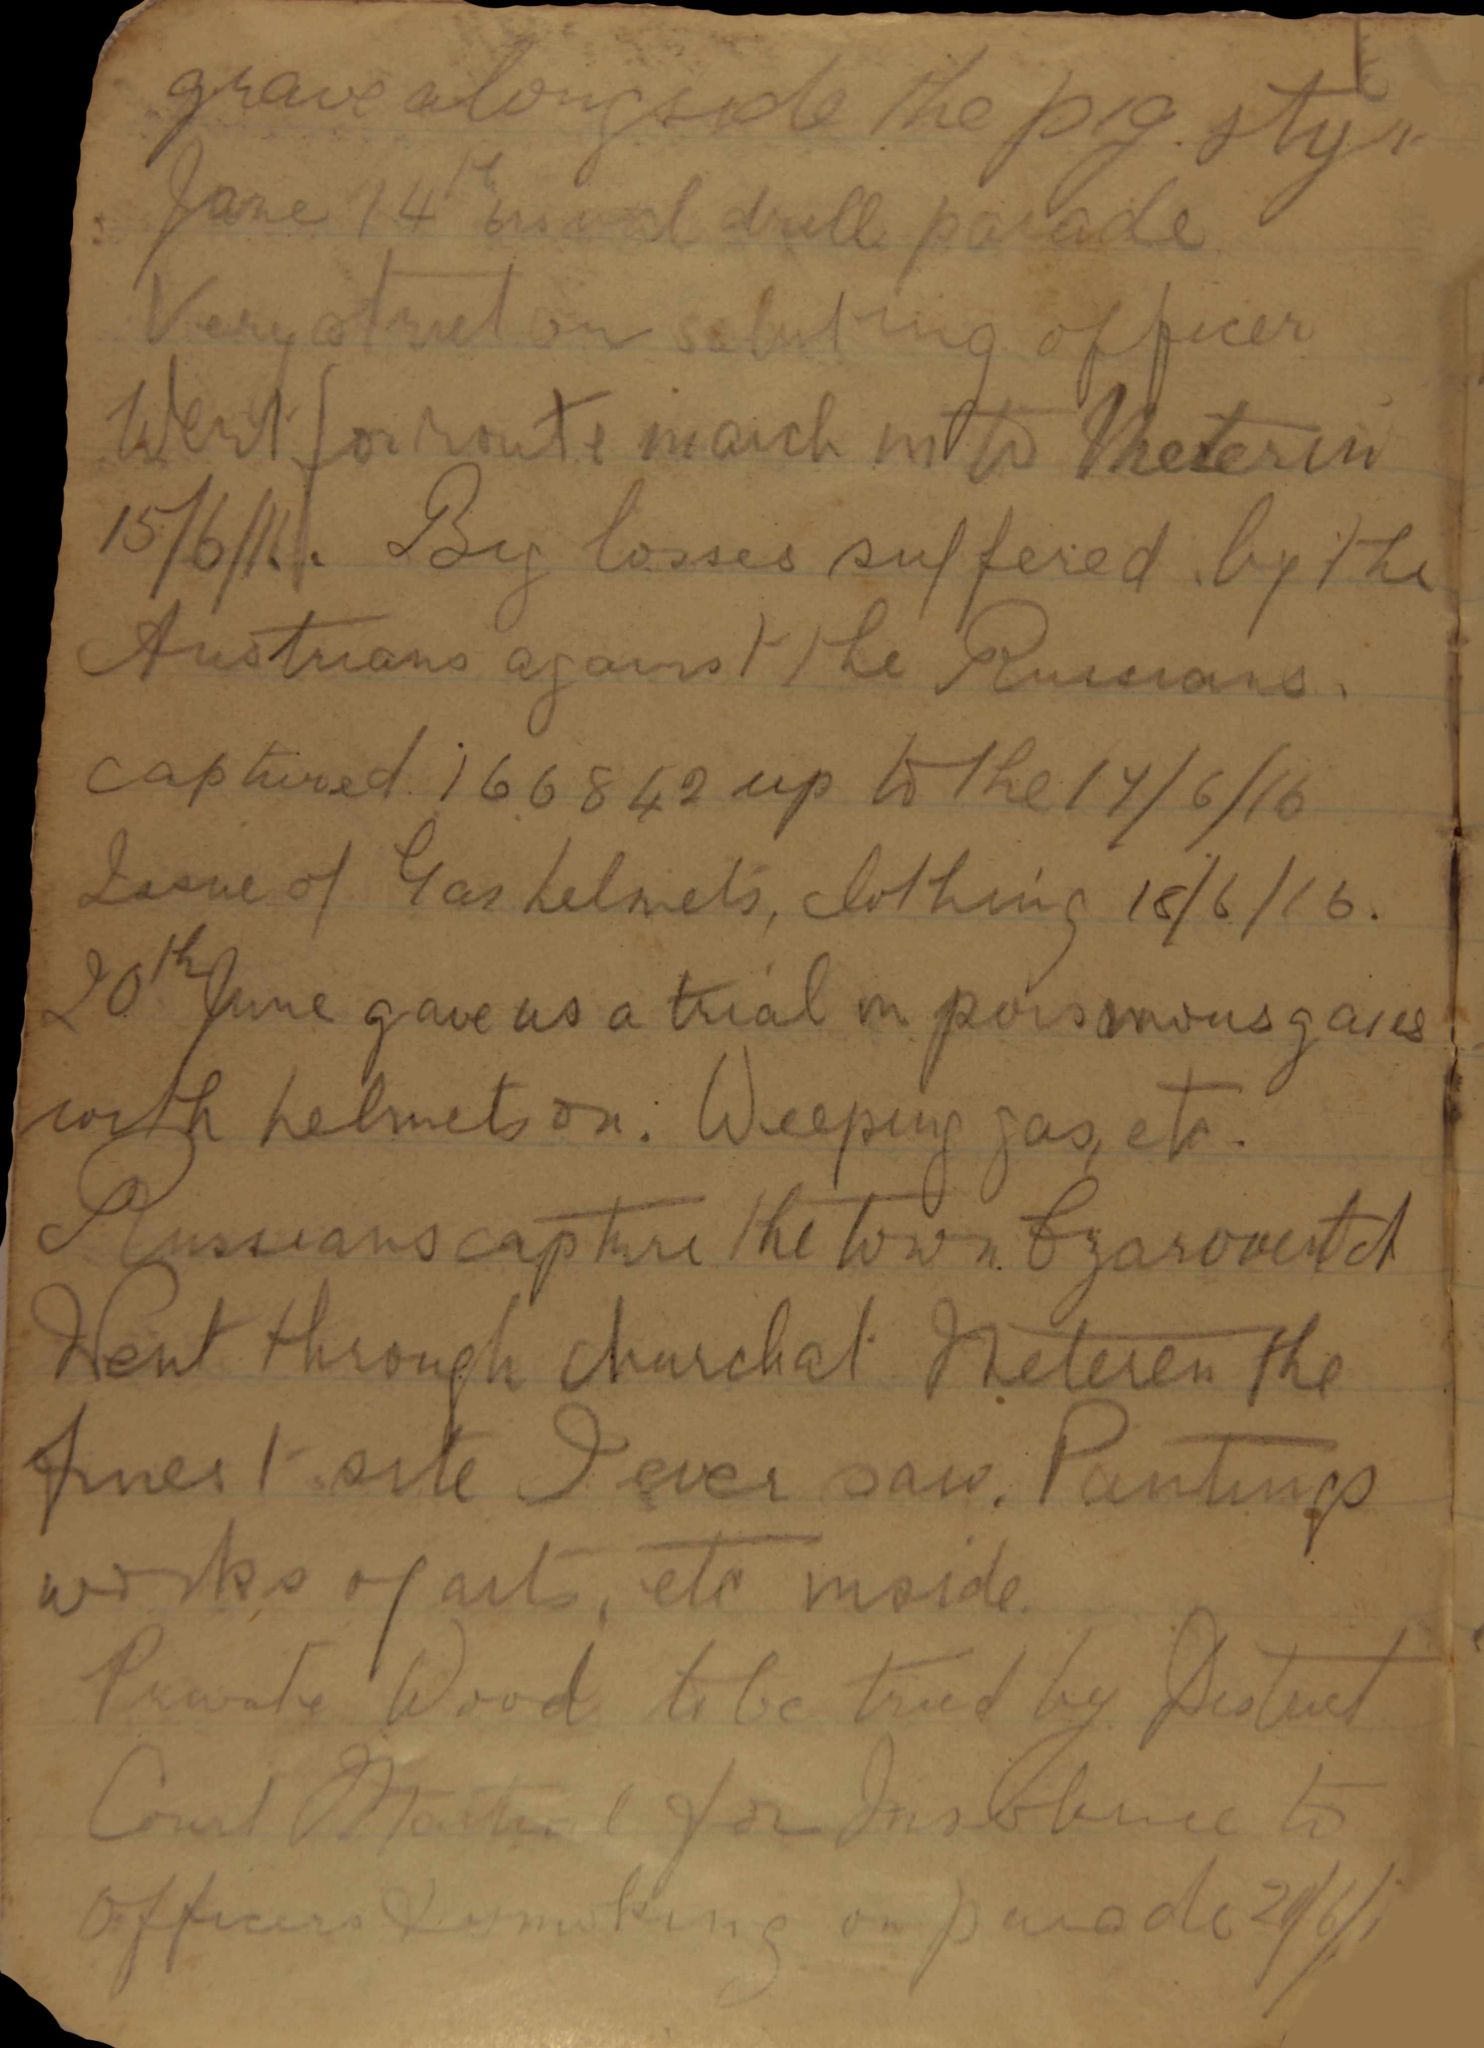 grave alongside the pig. sty
June 14th usual drill parade
Very strict on saluting officer
Went for route march into Meterin
15/6/16. Big losses suffered by the
Austrians against the Russians.
captured 166842 up to the 17/6/16
Issue of Gas helmets, clothing 18/6/16.
20th June gave us a trial in poisonous gases
with helmets on. Weeping gas, etc.
Russians capture the town Czarovertch
Went through church at Meteren the
finest site I ever saw. Paintings
works of arts, etc inside.
Private Wood to be tried by District
Court Martial for Insolence to
Officers & smoking on parade